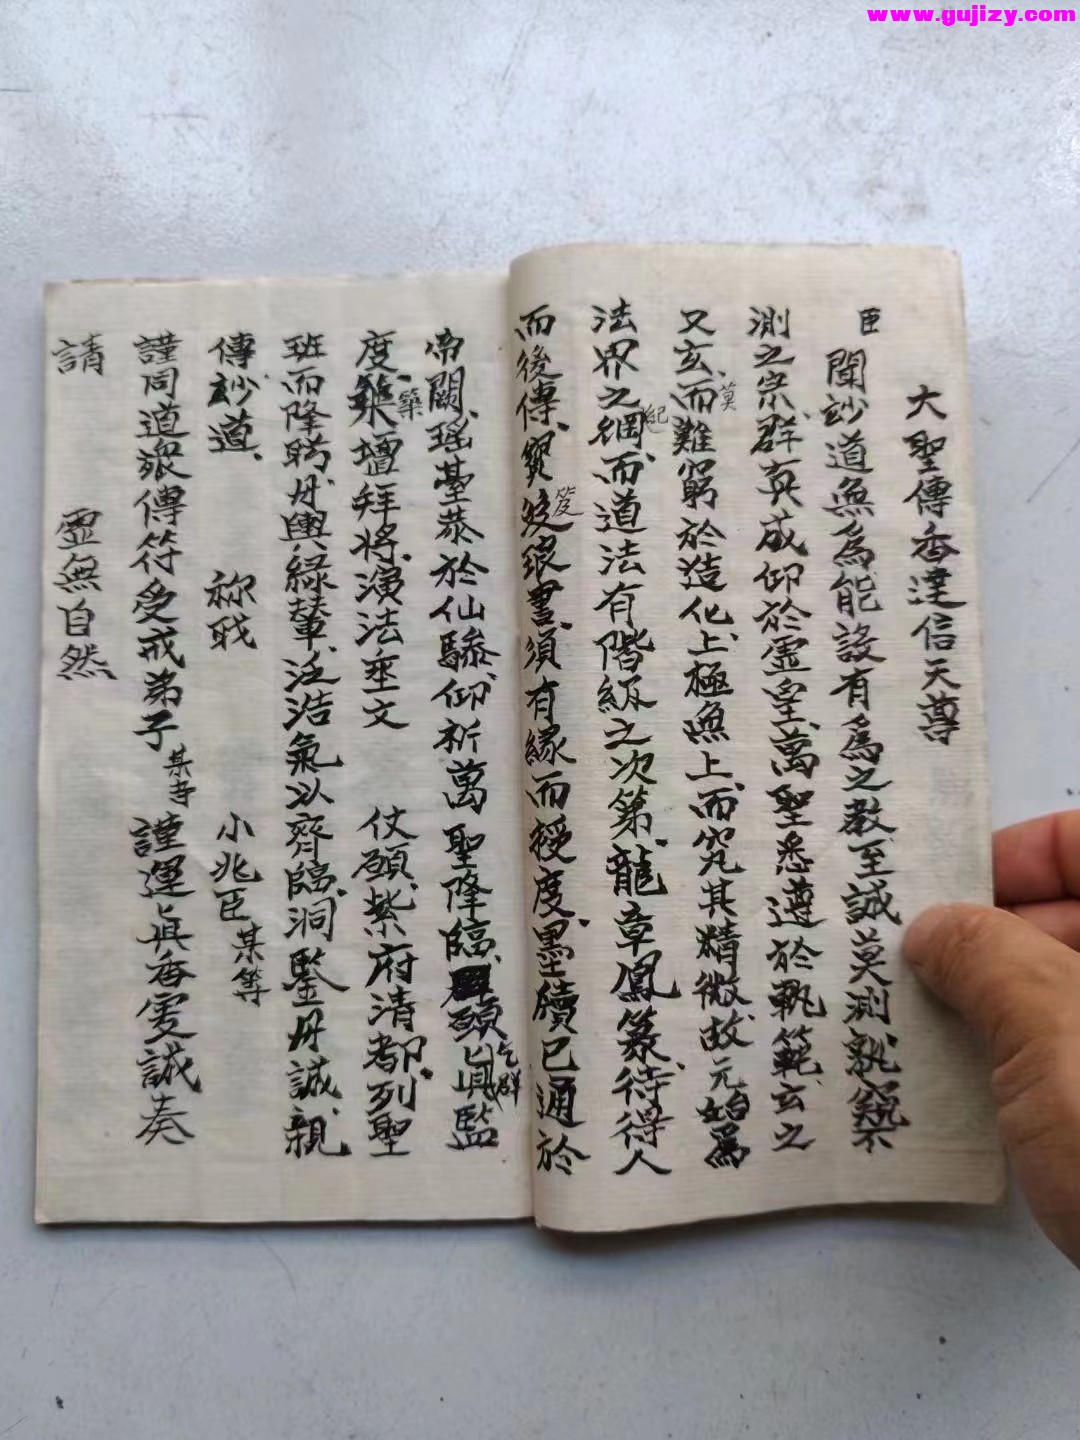 www.gujizy.com
大聖傳香達信天尊
臣
聞玅道無為能設有為之教至誠莫測孰窺不
測之宗群真咸仰於霊皇萬聖悉遵於軌範玄之
又玄而難窮於造化上極無上而究其精微故元始為
莫
法界之綱而道法有階級之次第龍章鳳篆待得人
紀
而後傳寶笈琅書須有緣而授度墨牘已通於
笈
帝闕瑤臺恭於仙驂仰祈萬聖降臨願真監
乞群
度築壇拜將演法垂文 仗願紫府清都列聖
築
班而降聘丹輿綠輦泛浩氣以齊臨洞鑒丹誠親
傳玅道 祢職 小兆臣某等
謹同道衆傳符受戒弟子某等謹運真香虔誠奏
請 霊無自然